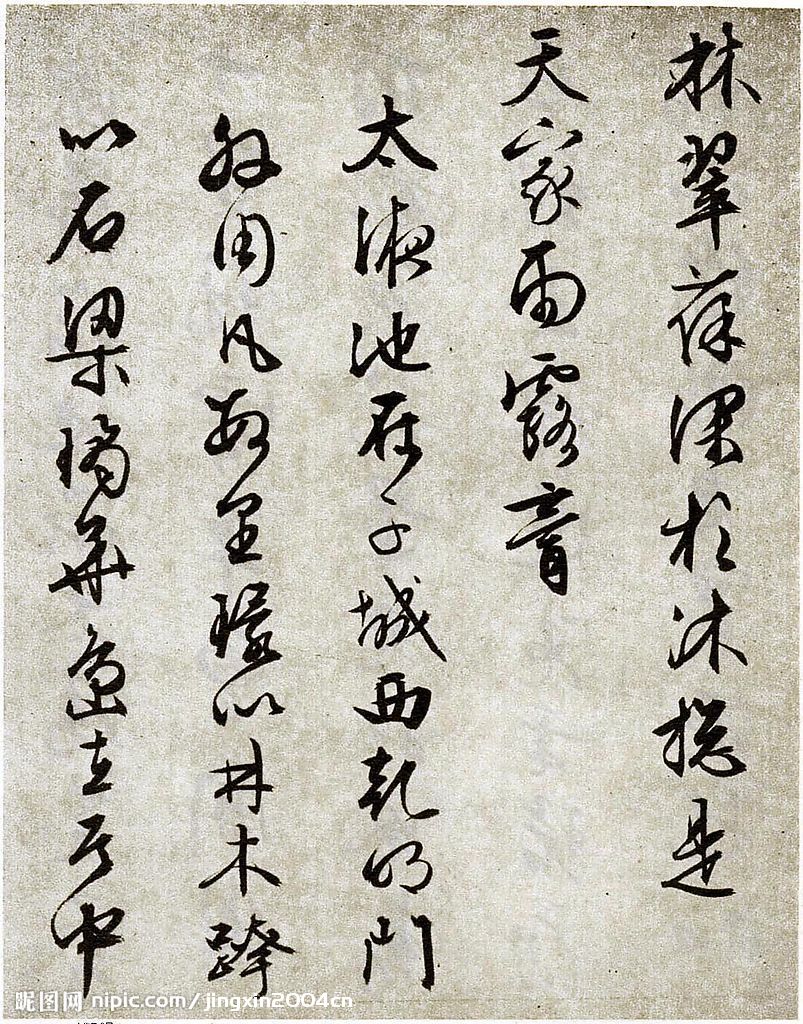 林翠葆深於沐揔是
天家雨露膏
太液池在子城西乾明門
外周凡數里環以林木跨
以石梁瓊華島在其中
昵图网 nipic.com/jingxin2004cn